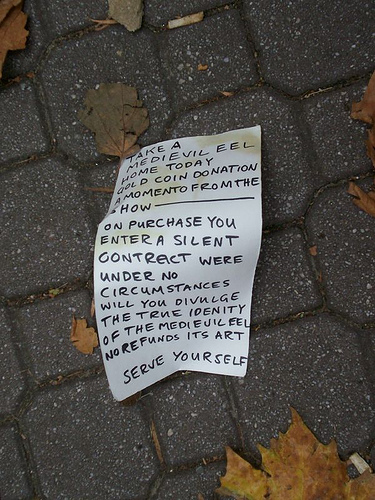 TAKE A
MEDIEVIL EEL
HOME TODAY
GOLD COIN DONATION
A MOMENTO FROM THE
SHOW
ON PURCHASE YOU
ENTER A SILENT
CONTRACT WERE
UNDER NO
CIRCUMSTANCES
WILL YOU DIVULGE
THE TRUE IDENITY
OF THE MEDIEVIL EEL
NO REFUNDS ITS ART
SERVE YOURSELF